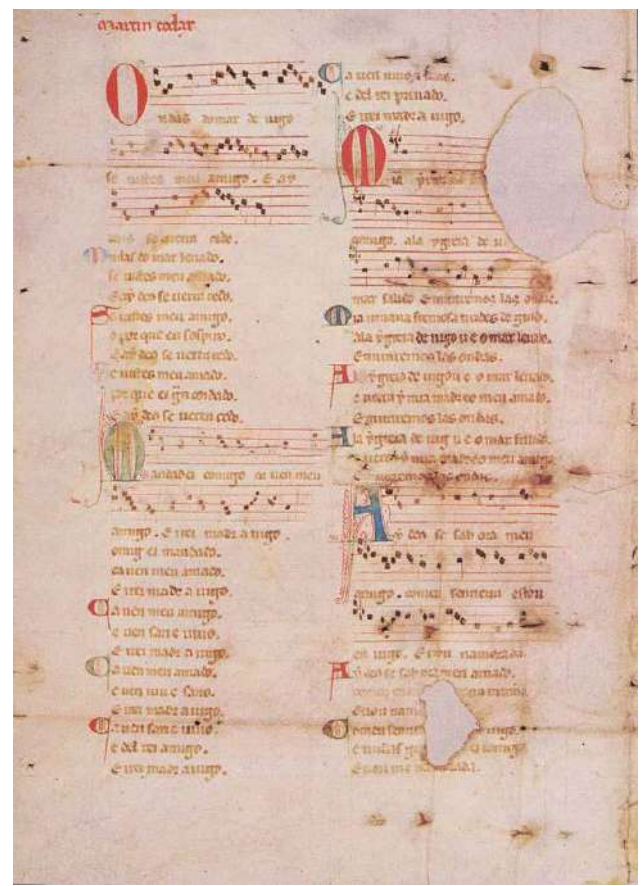 martin codax
Ondas do mar de uigo
se uistes meu amigo. E ay
deus se uerra cedo.
Ondas do mar leuado.
se uistes meu amado.
E ay deus se uerra cedo.
Se uistes meu amigo.
o por que eu sospiro.
E ay deus se uerra cedo.
Se uistes meu amado.
por que ei gran coidado.
E ay deus se uerra cedo.
Mandadei comigo ca uen meu
amigo. E irei madr a uigo.
comig ei mandado.
ca uen meu amado.
E irei madr a uigo.
Ca uen meu amigo.
e uen san e uiuo.
E irei madr a uigo.
Ca uen meu amado.
e uen uiu e sano.
E irei madr a uigo.
Ca uen san e uiuo.
e del rei amigo.
E irei madr a uigo.
Ca uen uiuo e sano.
e del rei priuado.
E irei madr a uigo.
Mia yrmana
comigo. ala ygreia de
mar salido E miraremos las ondas.
Mia irmana fremosa treides de grado.
ala ygreia de uigo u e o mar leuado.
E miraremos las ondas.
A la ygreia de uigo u e o mar leuado.
e uerra y mia madre o meu amado.
E miraremos las ondas.
A la ygreia de uig u e o mar salido.
e uerra y mia madre o meu amigo
E miraremos las ondas.
Ay deus se sab ora meu
amigo. comeu senneira estou
en uigo. E uou namorada
Ay deus se sab ora meu amado.
E uou
Comeu senneira uigo.
e nullas comigo.
E uou namorada.